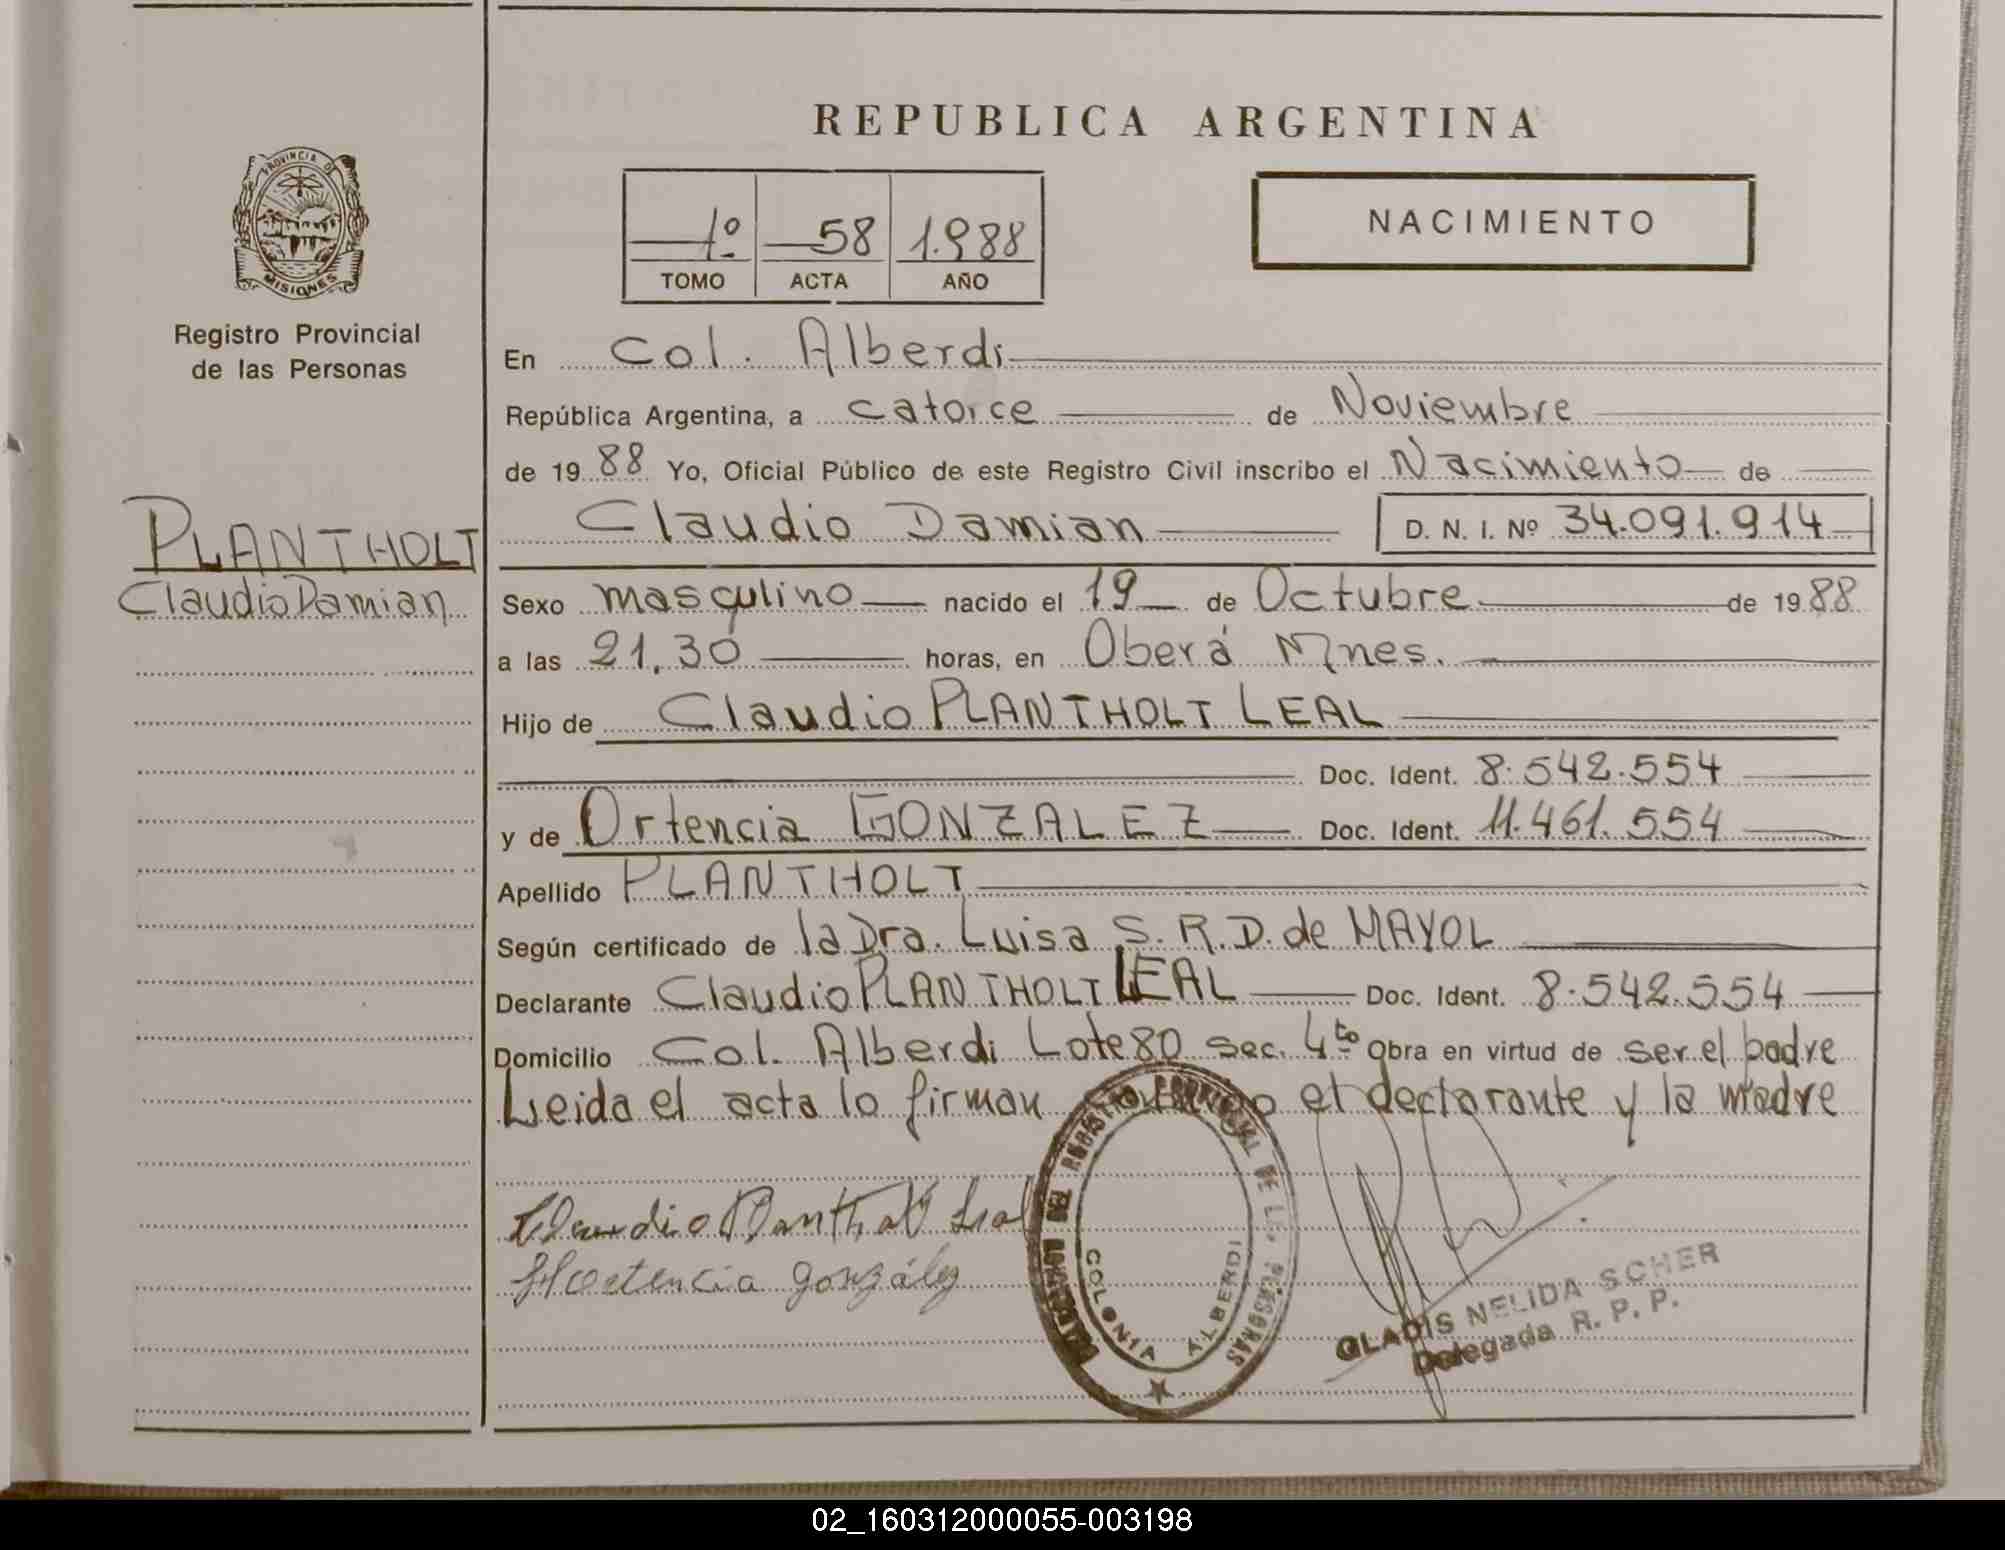 REPUBLICA ARGENTINA
PROVINCIA DE
MISIONES
Registro Provincial
de las Personas
1º 58 1.988
TOMO ACTA AÑO
NACIMIENTO
En Col. Alberdi
República Argentina, a catorce de Noviembre
de 19 88 Yo, Oficial Público de este Registro Civil inscribo el Nacimiento de
PLANTHOLT
Claudio Damian
Claudio Damian D. N. I. Nº 34.091.914
Sexo masculino nacido el 19 de Octubre de 19 88
a las 21,30 horas, en Oberá Mnes.
Hijo de Claudio PLANTHOLT LEAL
Doc. Ident. 8.542.554
y de Ortencia GONZALEZ Doc. Ident. 11.461.554
Apellido PLANTHOLT
Según certificado de la Dra. Luisa S. R. D. de MAYOL
Declarante Claudio PLANTHOLT LEAL Doc. Ident. 8.542.554
Domicilio Col. Alberdi Lote 80 sec. 4to Obra en virtud de ser el padre
Leida el acta lo firman el declarante y la madre
Claudio Plantholt Leal
Hortencia González
COLONIA ALBERDI
GLADIS NELIDA SCHER
Delegada R. P. P.
02_160312000055-003198